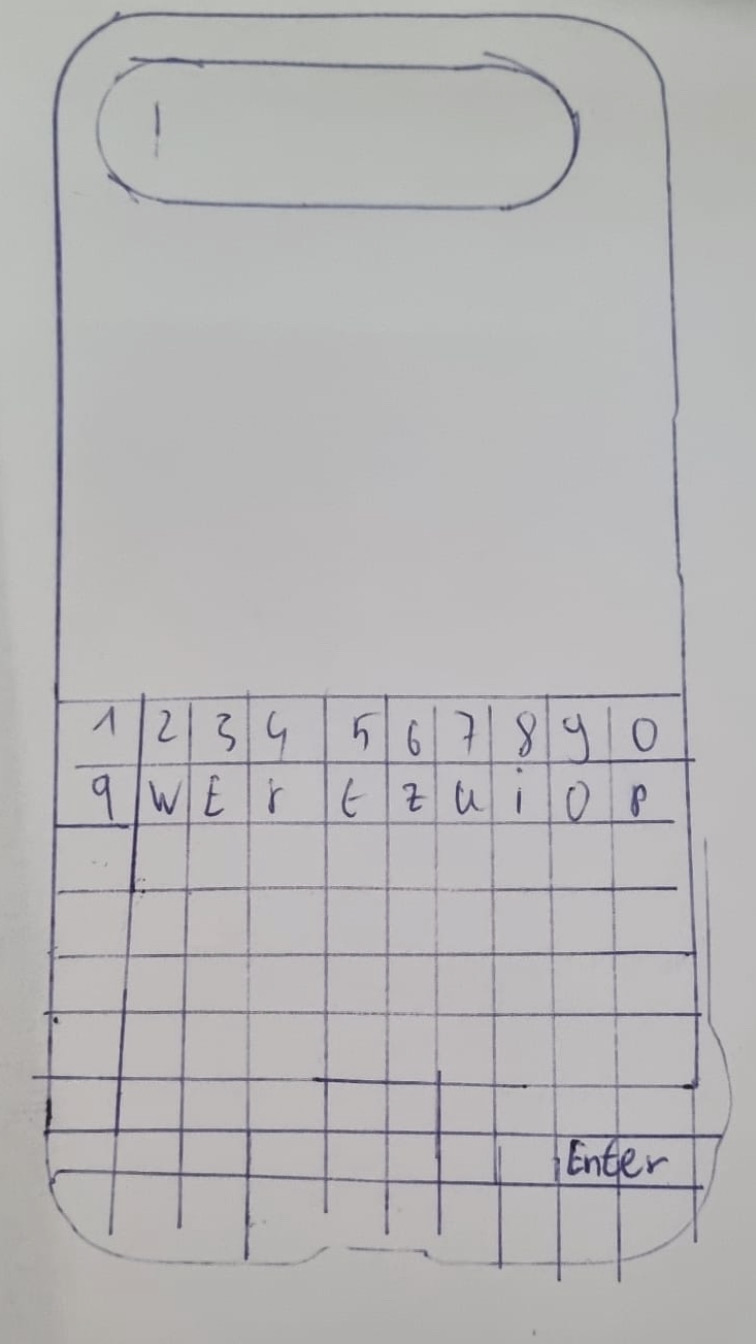 1 2 3 4 5 6 7 8 9 0
q W E r t z u i O p
Enter